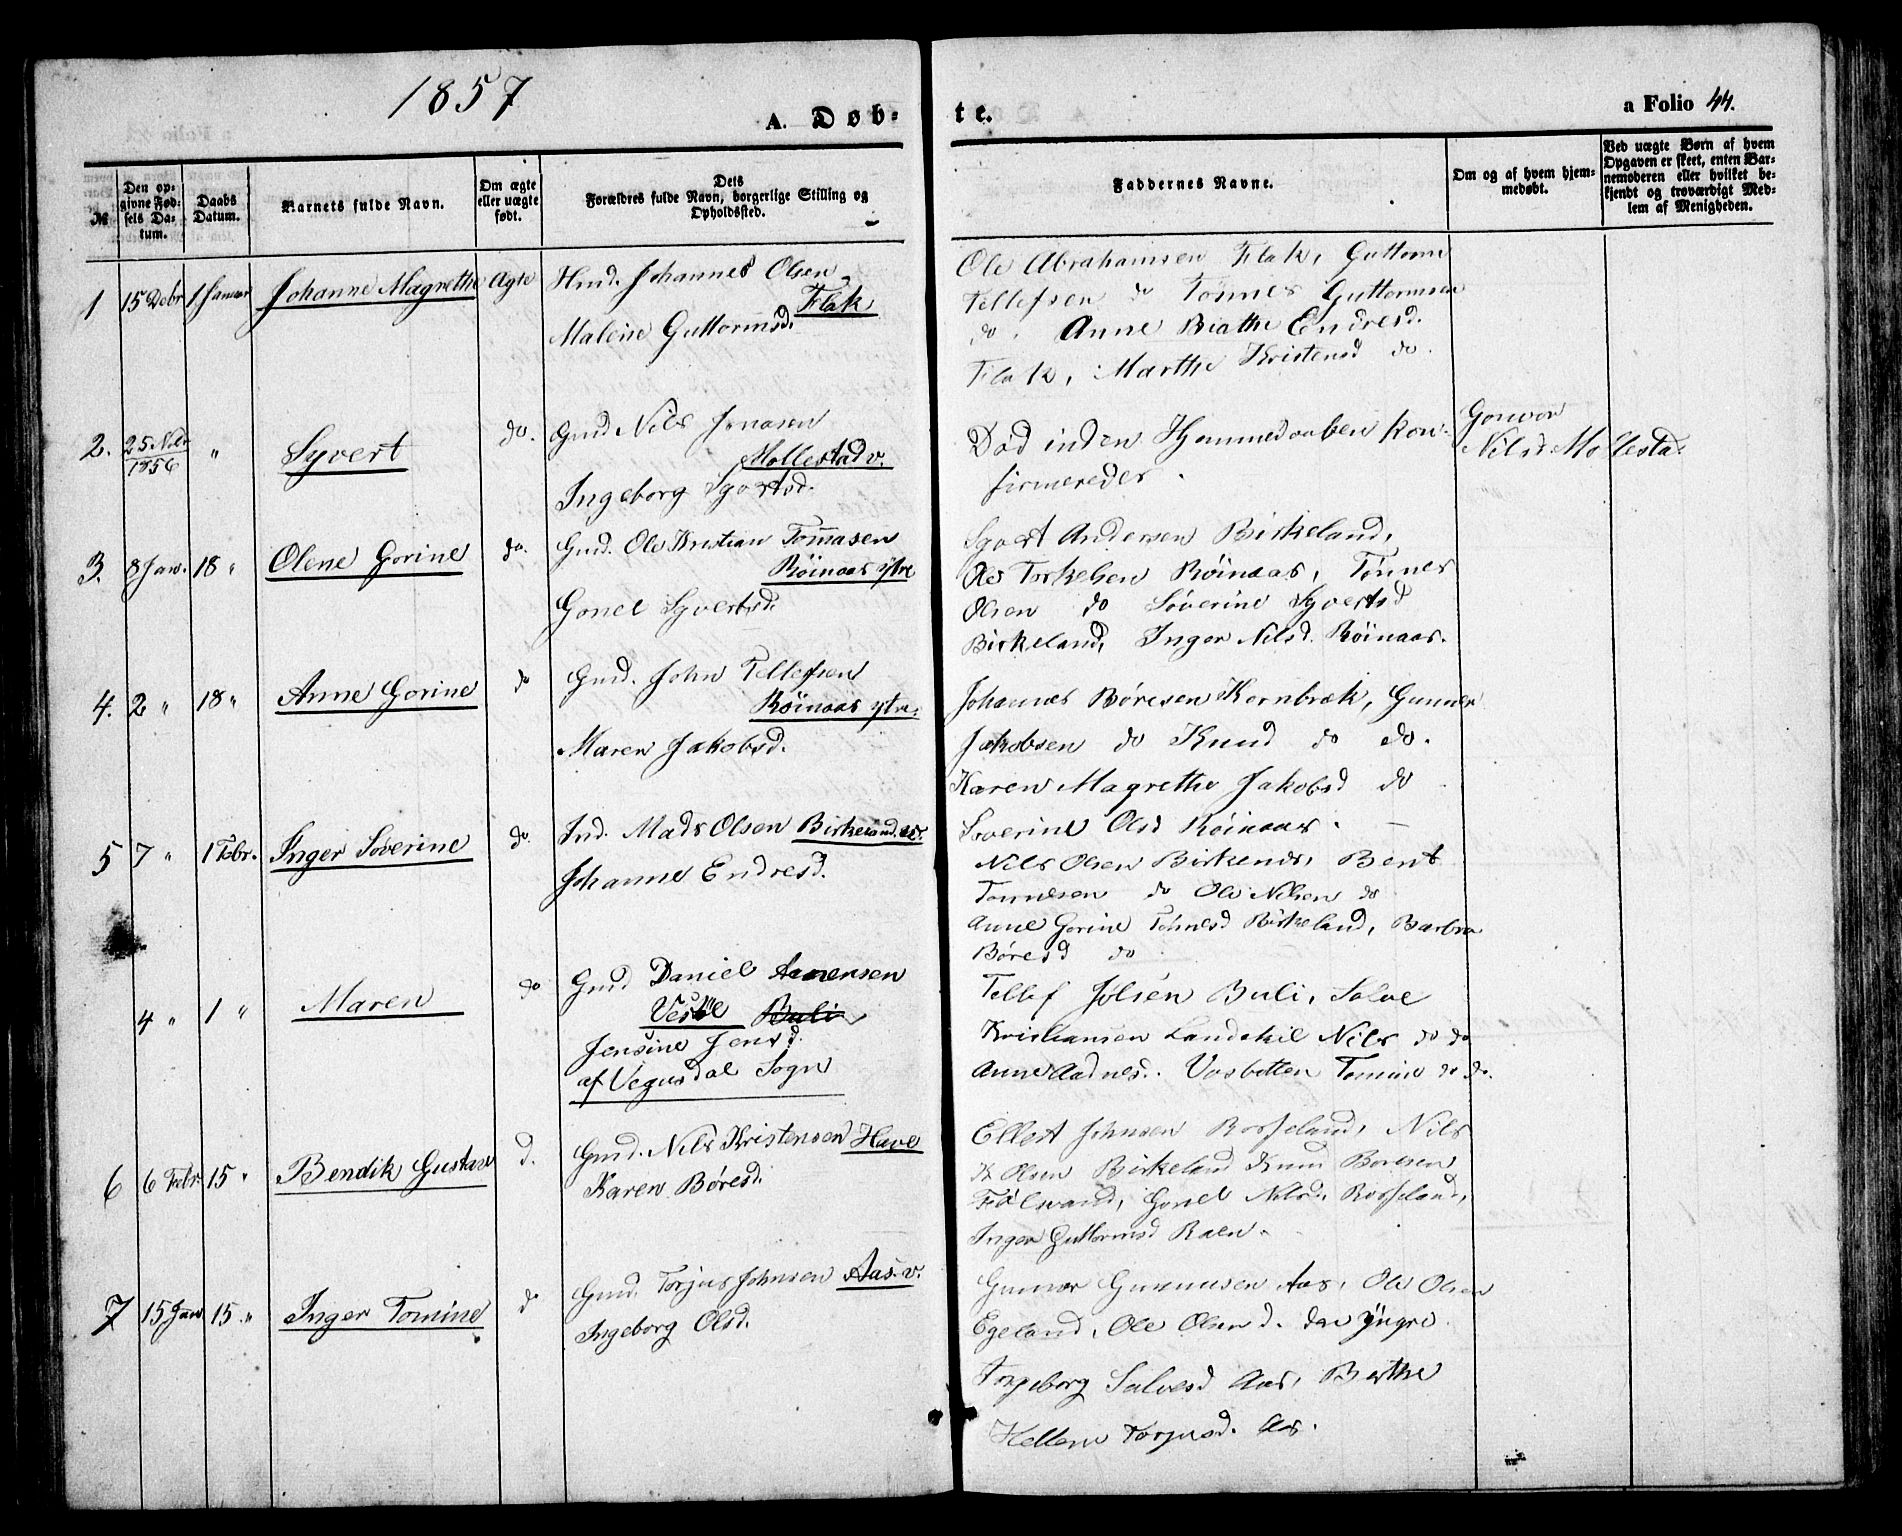 1857
A. Døb-
te.
a Folio 44.
№
Den op-
givne Fød-
sels Da-
tum.
Daabs
Datum.
Barnets fulde Navn.
Om ægte
eller uægte
født.
Dets
Forældres fulde Navn, borgerlige Stilling og
Opholdssted.
Faddernes Navne.
Om og af hvem hjem-
medøbt.
Ved uægte Børn af hvem
Opgaven er skeet, enten Bar-
nemoderen eller hvilket be-
kjendt og troværdigt Med-
lem af Menigheden.
1 15 Debr 1 Januar Johanne Magrethe Ægte Hmd. Johannes Olsen
Flak
Malene Guttormsd.
Ole Abrahamsen Flak, Guttorm
Tellefsen do Tønnes Guttormsen
do. Anne Birthe Endresd.
Flak, Marthe Kristensd do.
2. 25 Nbr
1856 " Syvert do. Gmd Nils Jonasen
Mollestad v.
Ingeborg SYvertsd.
Død inden Hjemmedaaben kon-
firmeredes.
Gonvor
Nilsd Mollestad
3. 8 Jan. 18 " Olene Gorine do. Gmd. Ole Kristian Tommasen
Röinaas ytre
Gonel Syvertsd.
Syvert Andersen Birkeland,
Ole Torkelsen Röinaas, Tønnes
Olsen do Söverine Syvertsd
Birkeland, Inger Nilsd. Röinaas.
4. 2 " 18 " Anne Gorine do Gmd. John Tellefsen
Röinaas ytre.
Maren Jakobsd.
Johannes Børesen Kornbræk, Gunner
Jakobsen do Knud do do.
Karen Magrethe Jakobsd do
Soverine Olsd Röinaas. —
5 7 " 1 Febr. Inger Soverine do. Ind. Mads Olsen Birkeland
Johanne Endresd.
Nils Olsen Birkeland, Bent
Tønnesen do Ole Nilsen do
Anne Gorine Tönnesd Birkeland, Barbra
Børesd do
4 " 1 " Maren do Gmd Daniel
Buli
Jensine Jensd.
af Vegusdal Sogn
Tellef Jolsen Buli, Salve
Kristiansen Landskil Nils do do
Anne Aadnesd. Vasbotten Tomine do do.
6 6 Febr. 15 " Bendik Gustav d. Gmd. Nils Kristensen Have
Karen Børesd.
Ellert Johnsen Rosseland, Nils
K Olsen Birkeland Knud Boresen
Følsvand, Gonel Nilsd. Rosseland,
Inger Guttormsd Raen.
7 15 Jan 15 " Inger Tomine d Gmd. Torjus Johnsen Aas. v.
Ingeborg Olsd.
Gunnar Gunnusen Aas, Ole Olsen
Egeland, Ole Olsen d. den yngre
Ingeborg Salvesd Aas, Berthe
Hellene Torjusd. Aas.